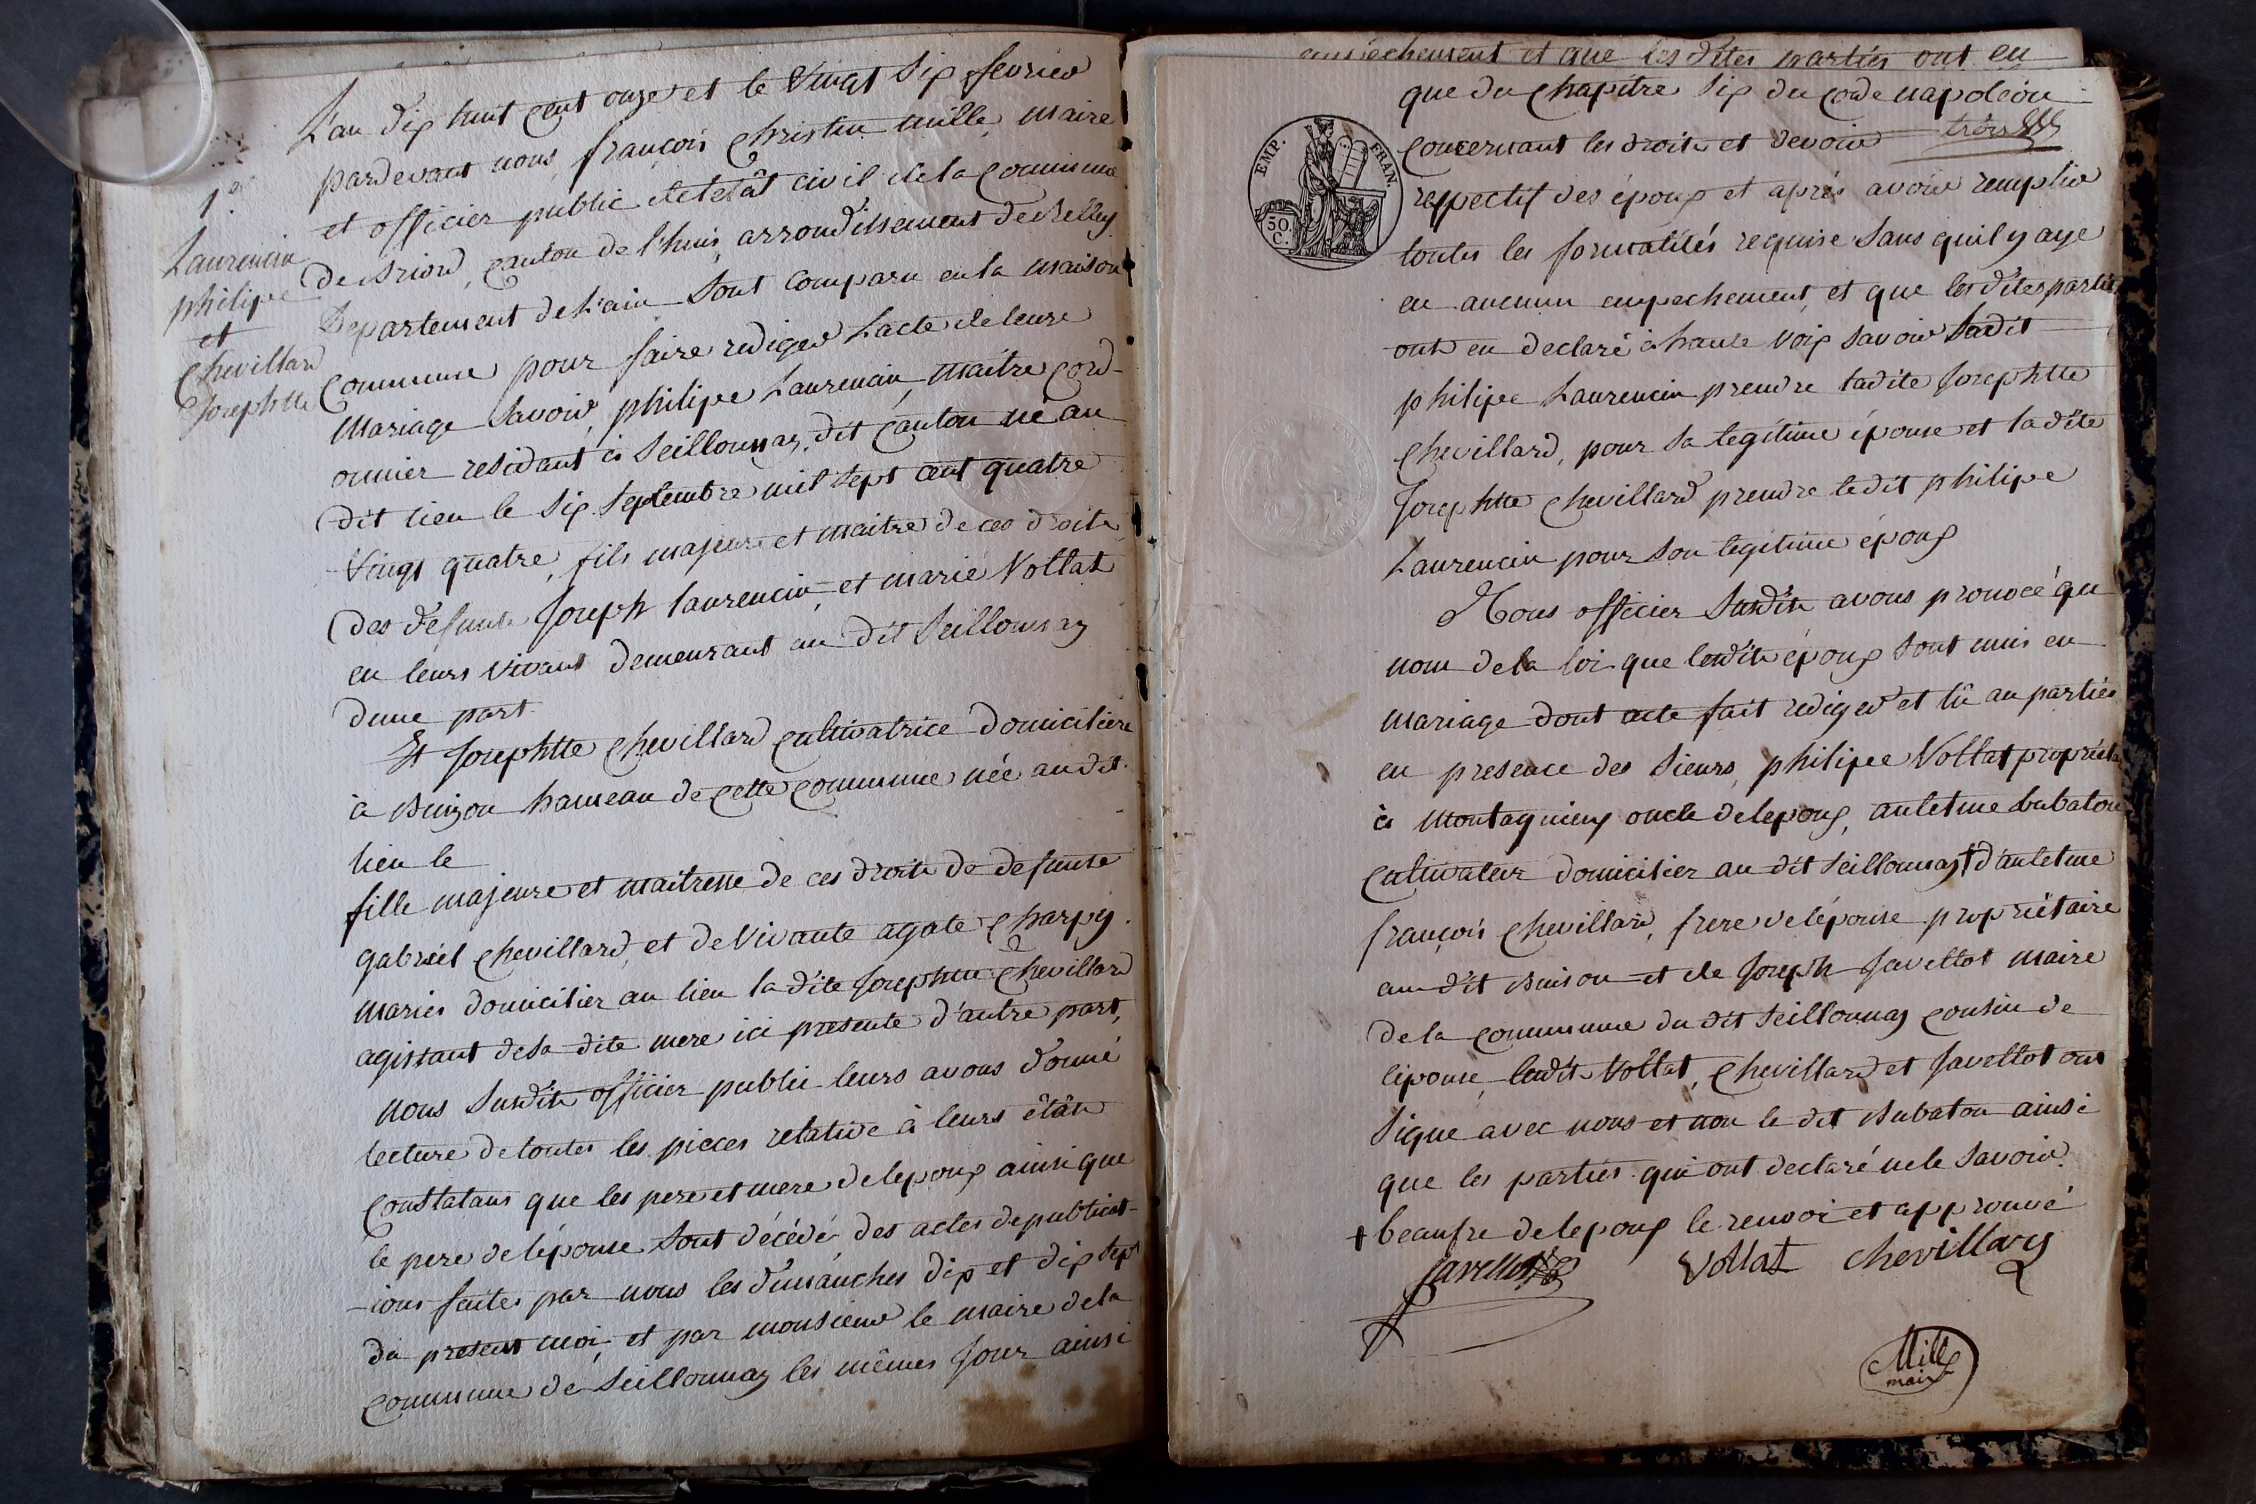 1er
Laurencin
philipe
et
Chevillard
Josephtte
L'an dix huit cent onze et le vingt six fevrier
pardevant nous françois Christin mille, maire
et officier public de letât civil de la Commune
de Briord, canton de l'huis arrondissement de Belley
Departement de L'ain Sont comparu en la maison
Commune pour faire rediger L'acte de leure
Mariage Savoir, philipe Laurencin, maitre Cord-
onnier residant à Seillonnaz, dit Canton né au
dit lieu le Six Septembre mil Sept cent quatre
Vingt quatre, fils majeure et maitre de ces droits
des défunts Joseph laurencin, et marie Vollat
en leurs vivant demeurant au dit Seillonnaz
dune part.
Et Josephtte Chevillard Cultivatrice Domiciliere
à Buizon hameau de Cette Commune née au dit
lieu le
fille majeure et maitresse de ces droits de defunte
gabriel Chevillard, et de Vivante agate Charpy
mariés domicilier au lieu la dite Josephtte Chevillard
agissant de sa dite mere ici presente d'autre part,
nous Susdits officier public leurs avons donné
lecture de toutes les pieces relative à leurs états
Constatans que les pere et mere de lepoux ainsi que
le pere de lépouse Sont décédé des actes de publicat-
-ions faites par nous les dimanches dix et dix sept
du present moi, et par monsieur le maire de la
Commune de Seillonnaz les mêmes Jour ainsi
empechement et que les dites parties ont en
EMP. FRAN.
50. C.
que du Chapitre Six du code napoléon
trois
Concernant les droits et devoir
respectif des époux et aprés avoir remplir
toutes les formalités requise Sans quil y aye
eu aucunu empechement, et que les dites partie
ont en declaré à haute Voix Savoir Ledit
philipe Laurencin prendre ladite Josephtte
Chevillard, pour Sa legitime épouse et la dite
Josephtte Chevillard prendre ledit philipe
Laurencin pour Son legitime époux
Nous officier Susdits avons pronocé qu
nom de la loi que lesdits époux Sont unis en
mariage dont acte fait rediger et lû au parties
en presence des Sieurs, philipe Vollat proprieta
à Montagnieu oncle de lepoux, antelme Bubaton
Cultivateur domicilier au dit Seillonnaz † d'antelme
françois Chevillard, frere de lépouse proprietaire
au dit Buison et de Joseph Javellot maire
de la Commune du dit Seillonnaz Cousin de
lépouse, lesdits Vollat, Chevillard et Javellot ont
Signé avec nous et non le dit Bubaton ainsi
que les parties qui ont declaré ne le Savoir.
† beaufre de lepoux le renvoi et approuvé
Javellot Vollat Chevillard
Mille
maire